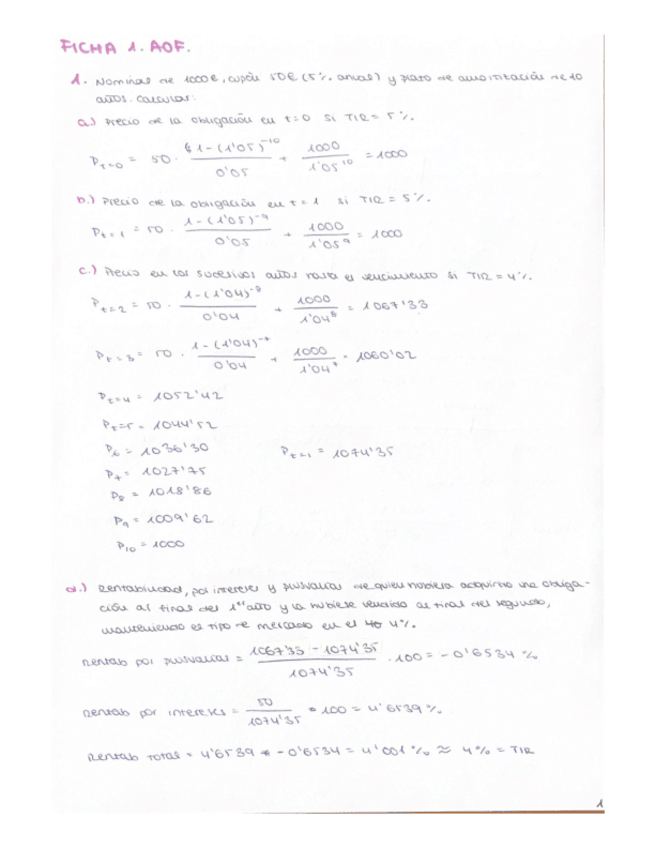 FICHA 1. AOF.
1. Nominal de 1000€, cupón 50€ (5% anual) y plazo de amortización de 10
años. Calcular:
a.) Precio de la obligación en t=0 si TIR = 5%.
P t=0 = 50 · (1-(1'05)^-10)/0'05 + 1000/1'05^10 = 1000
b.) Precio de la obligación en t=1 si TIR = 5%.
P t=1 = 50 · (1-(1'05)^-9)/0'05 + 1000/1'05^9 = 1000
c.) Precio en los sucesivos años hasta el vencimiento si TIR = 4%.
P t=2 = 50 · (1-(1'04)^-8)/0'04 + 1000/1'04^8 = 1067'33
P t=3 = 50 · (1-(1'04)^-7)/0'04 + 1000/1'04^7 = 1060'02
P t=4 = 1052'42
P t=5 = 1044'52
P6 = 1036'30 P t=1 = 1074'35
P7 = 1027'75
P8 = 1018'86
P9 = 1009'62
P10 = 1000
d.) Rentabilidad, por intereses y plusvalías de quien hubiera adquirido una obliga-
ción al final del 1er año y la hubiese vendido al final del segundo,
manteniendo el tipo de mercado en el 4%.
Rentab por plusvalías = (1067'33 - 1074'35)/1074'35 · 100 = -0'6534 %
Rentab por intereses = 50/1074'35 * 100 = 4'6539 %.
Rentab total = 4'6539 + -0'6534 = 4'001 % ≈ 4% = TIR
1